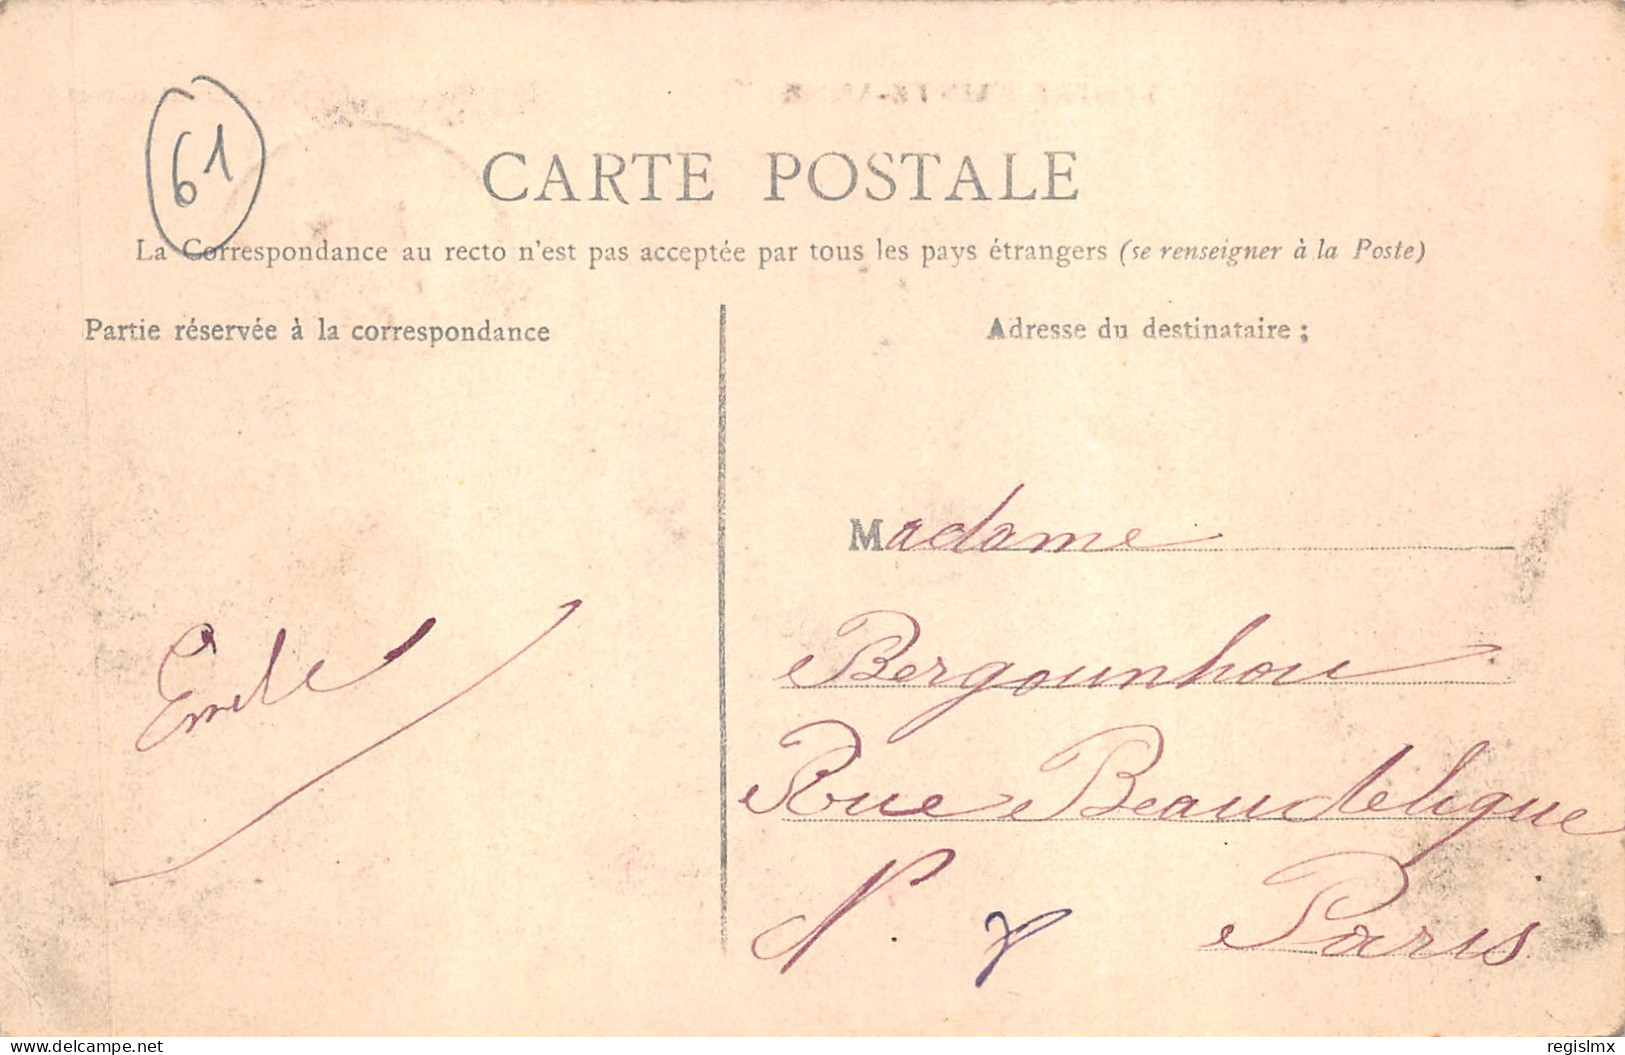 61
CARTE POSTALE
La Correspondance au recto n'est pas acceptée par tous les pays étrangers (se renseigner à la Poste)
Partie réservée à la correspondance
Adresse du destinataire ;
Madame
Bergounhou
Rue Beaudelique
N. 7
Paris
Emile
www.delcampe.net
regislmx